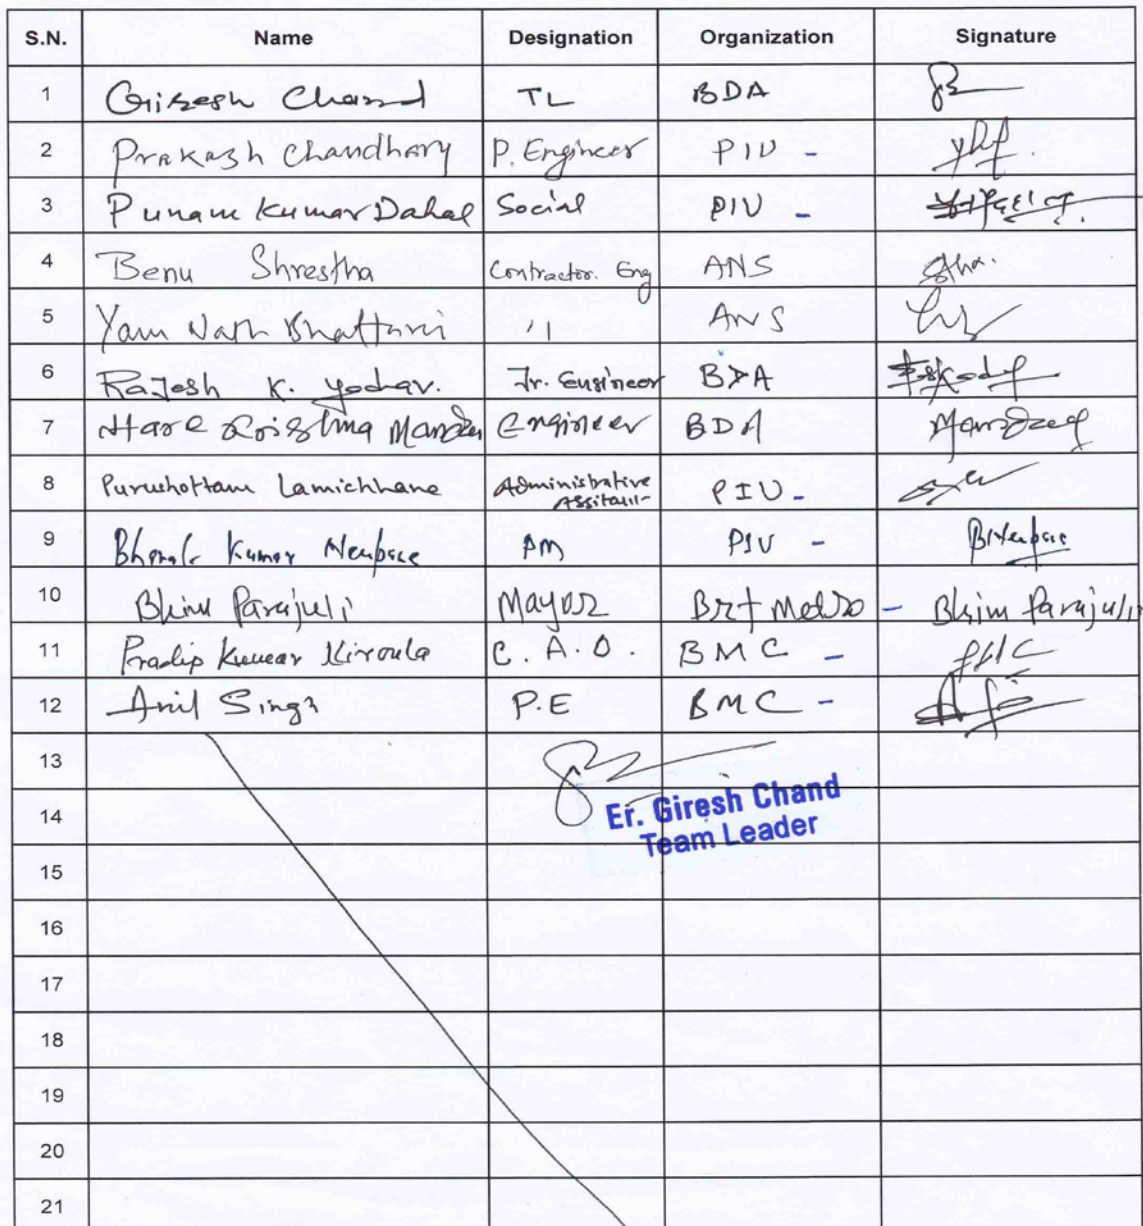 S.N. Name Designation Organization Signature
1 Giresh Chand TL BDA
2 Prakash Chaudhary P. Engineer PIU -
3 Punam Kumar Dahal Social PIU -
4 Benu Shrestha Contractor. Eng ANS Stha.
5 Yam Nath Bhattarai " ANS
6 Rajesh K. Yadav. Jr. Engineer BDA
7 Hare Krishna Mandal Engineer BDA
8 Purushottam Lamichhane Administrative Assitant PIU -
9 Kumar Neupane AM PIU -
10 Bhim Parajuli Mayor Brt Metro - Bhim Parajuli
11 Pradip Kumar Niroula C. A. O. BMC -
12 Anil Singh P.E BMC -
13
14 Er. Giresh Chand
Team Leader
15
16
17
18
19
20
21